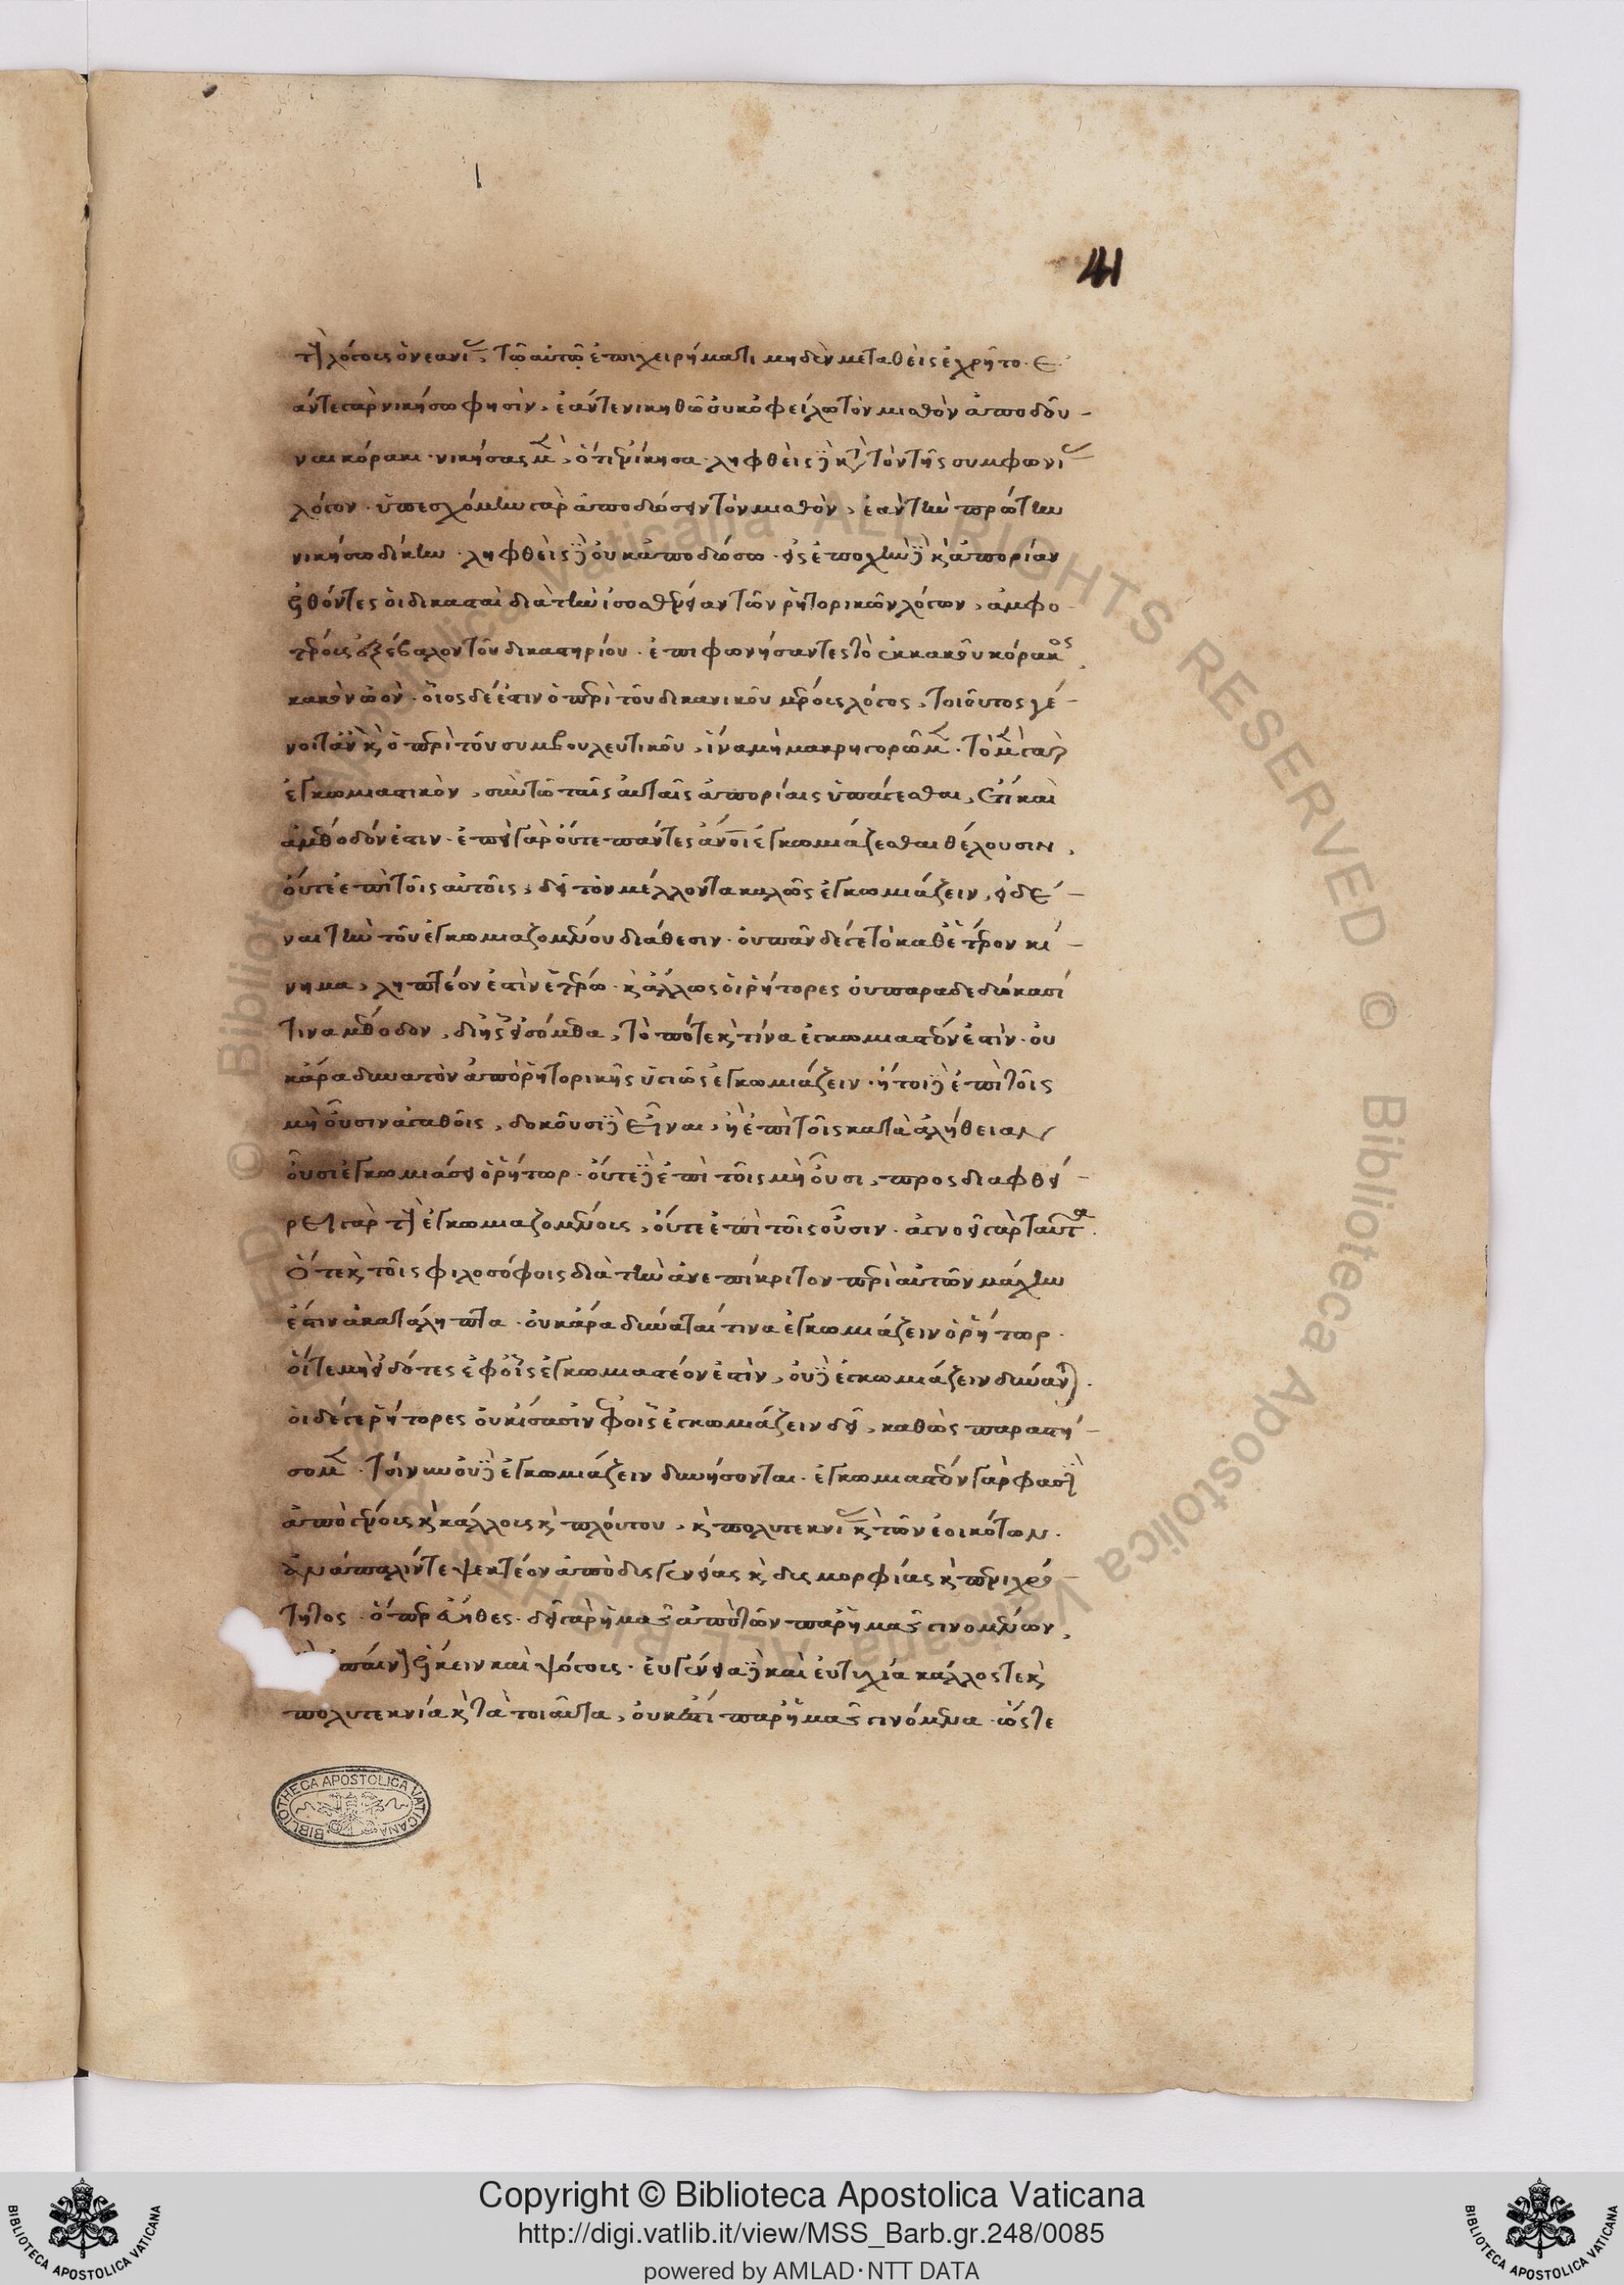 41
τοῖς λόγοις ὁ νεανίας, τῷ αὐτῷ ἐπιχειρήματι μηδὲν μεταθεὶς ἐχρῆτο. ἐ
άντε γὰρ νικήσω φησὶν, ἐάντε νικηθῶ οὐκ ὀφείλω τὸν μισθὸν ἀποδοῦ-
ναι κόρακι. νικήσας μὲν, ὅτι ἐνίκησα. ληφθεὶς δὲ κατὰ τὸν τῆς συμφωνίας
λόγον. ὑπεσχόμην γὰρ ἀποδώσειν τὸν μισθὸν, ἐὰν τὴν πρώτην
νικήσω δίκην. ληφθεὶς δὲ οὐκ ἀποδώσω. εἰς ἐποχὴν δὲ καὶ ἀπορίαν
ἐλθόντες οἱ δικασταὶ διὰ τὴν ἰσοσθένειαν τῶν ῥητορικῶν λόγων, ἀμφο
τέρους ἐξέβαλον τοῦ δικαστηρίου. ἐπιφωνήσαντες τὸ ἐκ κακοῦ κόρακος
κακὸν ὠόν. οἷος δέ ἐστιν ὁ περὶ τοῦ δικανικοῦ μέρους λόγος, τοιοῦτος γέ-
νοιτ' ἂν καὶ ὁ περὶ τοῦ συμβουλευτικοῦ, ἵνα μὴ μακρηγορῶμεν. τὸ μὲν γὰρ
ἐγκωμιαστικὸν, σὺν τῷ ταῖς αὐταῖς ἀπορίαις ὑπάγεσθαι, ἔτι καὶ
ἀμέθοδόν ἐστιν. ἐπεὶ γὰρ οὔτε πάντες ἄνοι ἐγκωμιάζεσθαι θέλουσιν,
οὔτε ἐπὶ τοῖς αὐτοῖς, δεῖ τὸν μέλλοντα καλῶς ἐγκωμιάζειν, εἰδέ-
ναι τὴν τοῦ ἐγκωμιαζομένου διάθεσιν. οὐ πᾶν δέ γε τὸ καθ' ἕτερον κί-
νημα, ληπτέον ἐστὶν ἑτέρῳ. καὶ ἄλλως οἱ ῥήτορες οὐ παραδεδώκασί
τινα μέθοδον, δι' ἧς εἰσόμεθα, τὸ πότε καὶ τίνα ἐγκωμιαστέον ἐστίν. οὐ
κ ἄρα δυνατὸν ἀπὸ ῥητορικῆς ὑγιῶς ἐγκωμιάζειν. ἤτοι δὲ ἐπὶ τοῖς
μὴ οὖσιν ἀγαθοῖς, δοκοῦσι δὲ εἶναι, ἢ ἐπὶ τοῖς κατὰ ἀλήθειαν
οὖσι ἐγκωμιάσει ὁ ῥήτωρ. οὔτε δὲ ἐπὶ τοῖς μὴ οὖσι, προσδιαφθεί-
ρει γὰρ τοὺς ἐγκωμιαζομένους, οὔτε ἐπὶ τοῖς οὖσιν. ἀγνοεῖ γὰρ ταῦτα.
ὅτε καὶ τοῖς φιλοσόφοις διὰ τὴν ἀνεπίκριτον περὶ αὐτῶν μάχην
ἐστιν ἀκατάληπτα. οὐκ ἄρα δύναταί τινα ἐγκωμιάζειν ὁ ῥήτωρ.
οἵ τε μὴ εἰδότες ἐφ' οἷς ἐγκωμιαστέον ἐστὶν, οὐδὲ ἐγκωμιάζειν δύνανται.
οἱ δέ γε ῥήτορες οὐκ ἴσασιν ἐφ' οἷς ἐγκωμιάζειν δεῖ, καθὼς παραστή-
σομεν. τοίνυν οὐδὲ ἐγκωμιάζειν δυνήσονται. ἐγκωμιαστέον γὰρ φασὶ
ἀπὸ γένους καὶ κάλλους καὶ πλούτου, καὶ πολυτεκνίας καὶ τῶν ἐοικότων.
ἀνάπαλίν τε ψεκτέον ἀπὸ δυσγενείας καὶ δυσμορφίας καὶ πενιχρό-
τητος. ὅπερ εὔηθες. δεῖ γὰρ ἡμᾶς ἀπὸ τῶν παρ' ἡμᾶς γινομένων,
ἕλκειν καὶ ψόγους. εὐγένεια δὲ καὶ εὐτυχία κάλλος τε καὶ
πολυτεκνία καὶ τὰ τοιαῦτα, οὐκ ἔστι παρ' ἡμᾶς γινόμενα. ὥστε
BIBLIOTHECA APOSTOLICA VATICANA
© Biblioteca Apostolica Vaticana ALL RIGHTS RESERVED
Copyright © Biblioteca Apostolica Vaticana
http://digi.vatlib.it/view/MSS_Barb.gr.248/0085
powered by AMLAD·NTT DATA
BIBLIOTECA APOSTOLICA VATICANA
BIBLIOTECA APOSTOLICA VATICANA